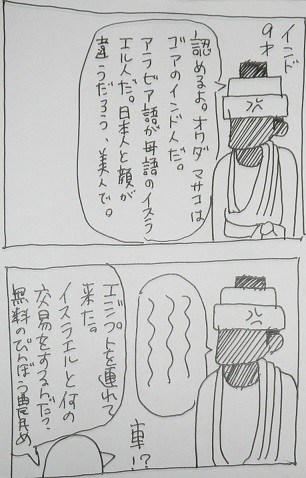 インド
9才
認めるよ。オワダ マサコは
ゴアのインド人だ。
アラビア語が母語のイスラ
エル人だ。日本人と顔が
違うだろう、美人で。
車!?
エジプトを連れて
来た。
イスラエルと何の
交易をするんだ?
無料のびんぼう農民め